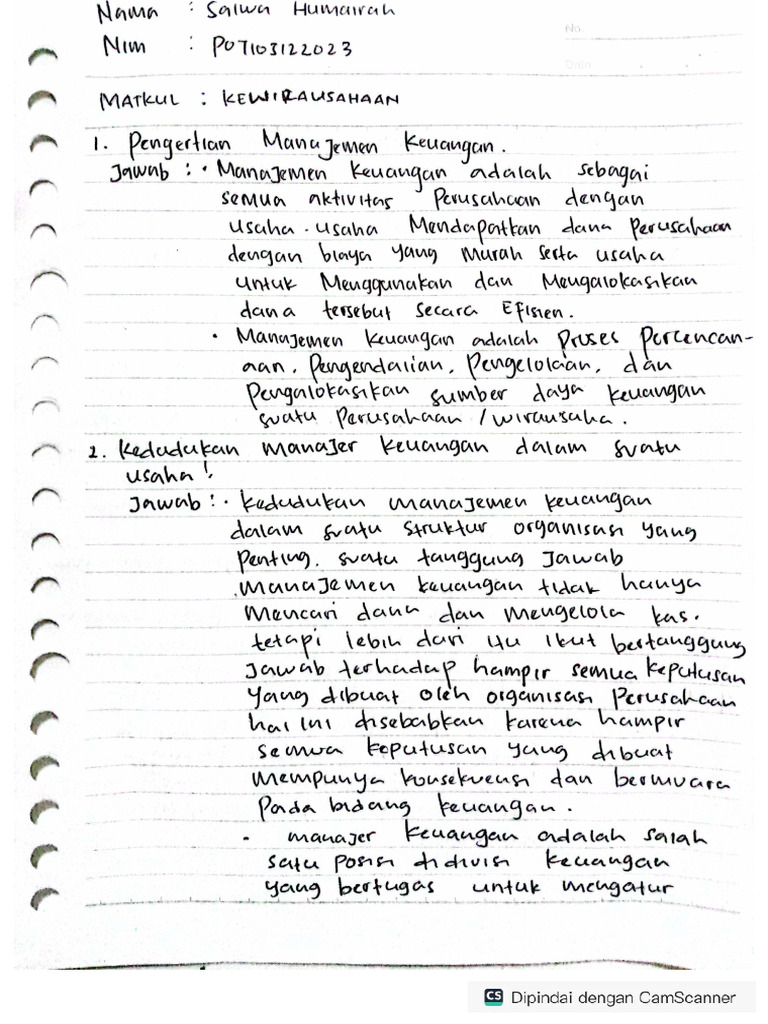 Nama : Salwa Humairah
Nim : P07103122023
No.
Date
MATKUL : KEWIRAUSAHAAN
1. Pengertian Manajemen Keuangan.
Jawab : • Manajemen Keuangan adalah sebagai
semua aktivitas Perusahaan dengan
usaha-usaha Mendapatkan dana Perusahaan
dengan biaya yang murah serta usaha
untuk Menggunakan dan Mengalokasikan
dana tersebut secara Efisien.
• Manajemen keuangan adalah Proses Perencan-
aan, Pengendalian, Pengelolaan, dan
Pengalokasikan sumber daya keuangan
suatu Perusahaan / wirausaha.
2. Kedudukan manajer keuangan dalam suatu
usaha!
Jawab : • Kedudukan manajemen keuangan
dalam suatu struktur organisasi yang
Penting. suatu tanggung Jawab
manajemen keuangan tidak hanya
Mencari dana dan mengelola kas.
tetapi lebih dari itu ikut bertanggung
Jawab terhadap hampir semua keputusan
Yang dibuat oleh organisasi Perusahaan
hal ini disebabkan karena hampir
semua keputusan yang dibuat
mempunya konsekuensi dan bermuara
Pada bidang keuangan.
• manajer keuangan adalah salah
satu posisi didivisi keuangan
yang bertugas untuk mengatur
CS Dipindai dengan CamScanner